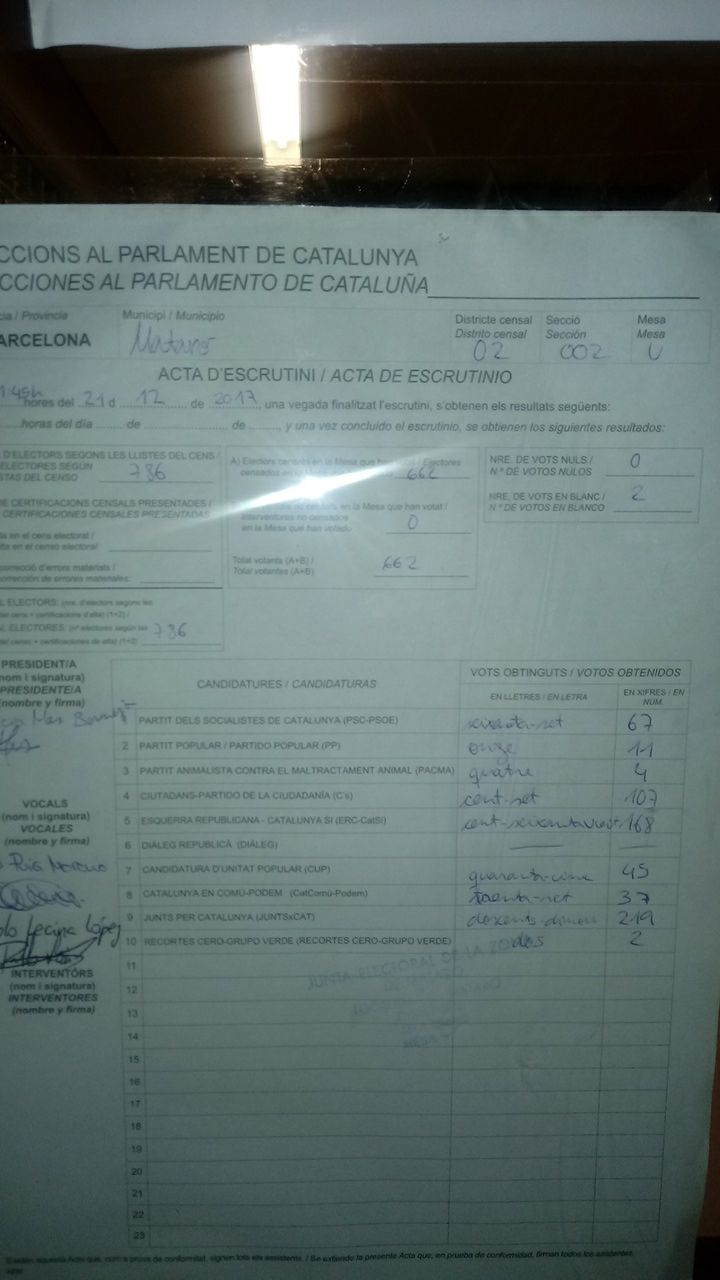 CCIONS AL PARLAMENT DE CATALUNYA
CCIONES AL PARLAMENTO DE CATALUÑA
cia / Provincia
ARCELONA
Municipi / Municipio
Mataró
Districte censal
Distrito censal
02
Secció
Sección
002
Mesa
Mesa
U
ACTA D'ESCRUTINI / ACTA DE ESCRUTINIO
1:45h hores del 21 d 12 de 2017, una vegada finalitzat l'escrutini, s'obtenen els resultats següents:
horas del día de de , y una vez concluido el escrutinio, se obtienen los siguientes resultados:
D'ELECTORS SEGONS LES LLISTES DEL CENS /
ELECTORES SEGÚN
STAS DEL CENSO 786
DE CERTIFICACIONS CENSALS PRESENTADES /
CERTIFICACIONES CENSALES PRESENTADAS
ta en el cens electoral /
lta en el censo electoral:
correcció d'errors materials /
corrección de errores materiales:
L ELECTORS: (nre. d'electors segons les
del cens + certificacions d'alta) (1+2) /
L ELECTORES: (nº electores según las
del censo + certificaciones de alta) (1+2) 786
A) Electors censats en la Mesa que han / Electores
censados en la Mesa que 662
no censats en la Mesa que han votat /
Interventores no censados
en la Mesa que han votado 0
Total votants (A+B) /
Total votantes (A+B) 662
NRE. DE VOTS NULS /
N.º DE VOTOS NULOS 0
NRE. DE VOTS EN BLANC /
N.º DE VOTOS EN BLANCO 2
PRESIDENT/A
(nom i signatura)
PRESIDENTE/A
(nombre y firma)
VOCALS
(nom i signatura)
VOCALES
(nombre y firma)
Lecina López
INTERVENTORS
(nom i signatura)
INTERVENTORES
(nombre y firma)
CANDIDATURES / CANDIDATURAS
VOTS OBTINGUTS / VOTOS OBTENIDOS
EN LLETRES / EN LETRA
EN XIFRES / EN NUM.
PARTIT DELS SOCIALISTES DE CATALUNYA (PSC-PSOE) seixanta-set 67
2 PARTIT POPULAR / PARTIDO POPULAR (PP) onze 11
3 PARTIT ANIMALISTA CONTRA EL MALTRACTAMENT ANIMAL (PACMA) quatre 4
4 CIUTADANS-PARTIDO DE LA CIUDADANÍA (C's) cent-set 107
5 ESQUERRA REPUBLICANA - CATALUNYA SI (ERC-CatSí) cent-seixanta-vuit 168
6 DIÀLEG REPUBLICÀ (DIÀLEG)
7 CANDIDATURA D'UNITAT POPULAR (CUP) quaranta-cinc 45
8 CATALUNYA EN COMÚ-PODEM (CatComú-Podem) trenta-set 37
9 JUNTS PER CATALUNYA (JUNTSxCAT) doscents-dinou 219
10 RECORTES CERO-GRUPO VERDE (RECORTES CERO-GRUPO VERDE) dos 2
11
JUNTA ELECTORAL DE LA ZO
12
13
14
15
16
17
18
19
20
21
22
23